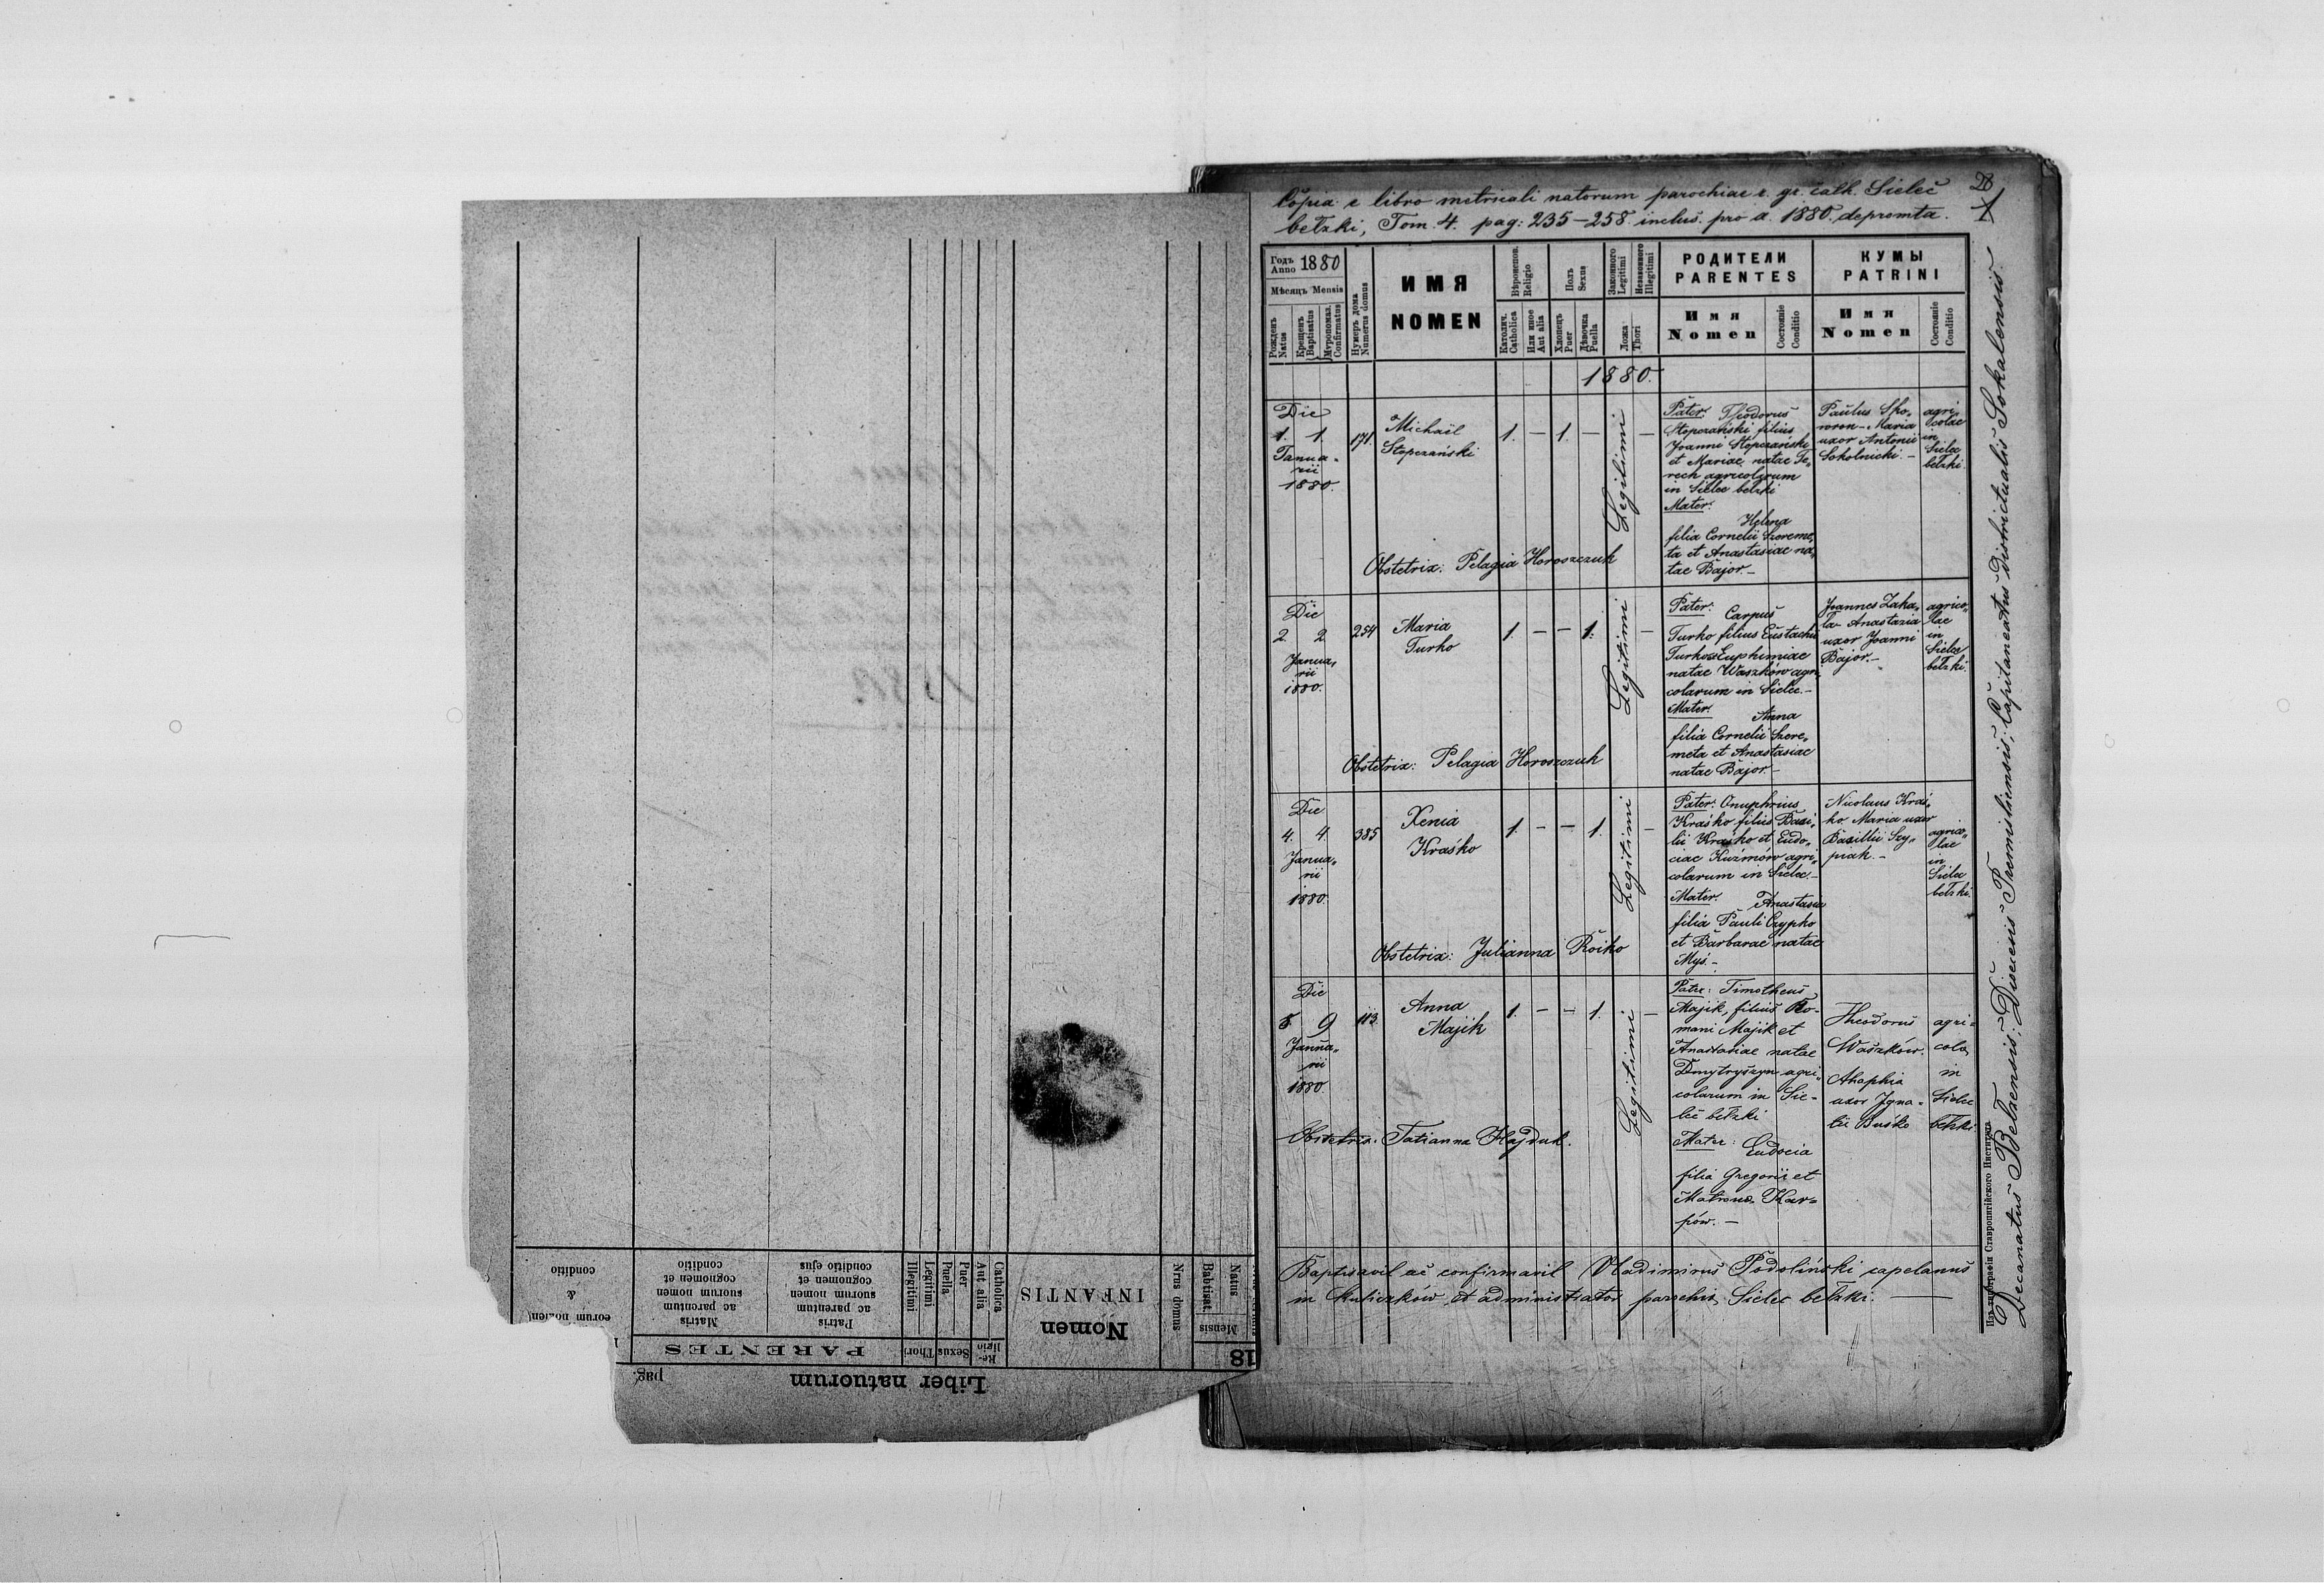 Copia e libro metricali natorum parochiae r. gr. cath. Sielec
bełzki, Tom. 4. pag: 235–258 inclus. pro a. 1880. depromta.
28
Годъ
Anno 1880
Мѣсяцъ Mensis
Рожденъ
Natus
Крещенъ
Baptisatus
Мѵропомаз.
Confirmatus
Нумеръ дома
Numerus domus
ИМЯ
NOMEN
Вѣроиспов.
Religio
Католич.
Catholica
Или иное
Aut alia
Полъ
Sexus
Хлопецъ
Puer
Дѣвочка
Puella
Законного
Legitimi
Незаконного
Illegitimi
Ложа
Thori
РОДИТЕЛИ
PARENTES
Имя
Nomen
Состояніе
Conditio
КУМЫ
PATRINI
Имя
Nomen
Состояніе
Conditio
1880.
Die
1. 1.
Janua-
rii
1880.
171.
Michaël
Stopczański
1. — 1. —
Legitimi
—
Pater: Theodorus
Stopczański filius
Joanni Stopczański
et Mariae natae Te„
rech agricolarum
in Sielec bełzki
Mater:
Helena
filia Cornelii Szereme„
ta et Anastasiae na„
tae Bajor.–
Paulus Sko„
woron– Maria
uxor Antonii
Sokolnicki.–
agri„
colae
in
Sielec
bełzki.
Obstetrix: Pelagia Horoszczuk
Die
2. 2.
Janua„
rii
1880.
254
Maria
Turko
1. — — 1.
Legitimi
—
Pater: Carpus
Turko filius Eustachii
Turko et Euphimiae
natae Waszków agri„
colarum in Sielec.–
Mater: Anna
filia Cornelii Szere„
meta et Anastasiae
natae Bajor.–
Joannes Zaka„
la– Anastazia
uxor Joanni
Bajor.–
agrico„
lae
in
Sielec
bełzki.
Obstetrix: Pelagia Horoszczuk
Die
4. 4.
Janua„
rii
1880.
385
Xenia
Kraśko
1. — — 1.
Legitimi
—
Pater: Onuphrius
Kraśko filius Basi„
lii Kraśko et Eudo„
ciae Kuźmów agri„
colarum in Sielec.–
Mater: Anastasia
filia Pauli Czypko
et Barbarae natae
Myś.–
Nicolaus Kraś„
ko Maria uxor
Basilii Szy„
piak.–
agrico„
lae
in
Sielec
bełzki.
Obstetrix: Julianna Roiko
Die
8 9
Janua„
rii
1880.
113.
Anna
Majik
1. — — 1.
Legitimi
—
Pater: Timotheus
Majik, filius Ro-
mani Majik et
Anastasiae natae
Dmytryszyn agri„
colarum in Sie-
lec bełzki
Mater: Eudocia
filia Gregorii et
Matrona Kar-
pów.–
Theodorus
Waszków.
Ahaphia
uxor Igna-
tii Buśko
agri-
cola
in
Sielec
bełzki
Obstetrix: Tatianna Hajduk.
Baptisavit ac confirmavit Vladimirus Podoliński capelanus
in Kuliczków, et administrator parochia Sielec bełzki. —
Decanatus Belzensis; Diecesis Premisliensis; Capitaneatus districtualis Sokalensis
Изъ типографіи Ставропигійского Института
Liber natuorum
pag.
18
Mensis
Natus
Babtisat.
Nrus domus
Nomen
INFANTIS
Re-
ligio
Catholica
Aut alia
Sexus
Puer
Puella
Thori
Legitimi
Illegitimi
PARENTES
Patris
ac
parentum
suorum nomen
cognomen et
conditio ejus
Matris
ac
parentum
suorum nomen
cognomen et
conditio
eorum nomen
&
conditio